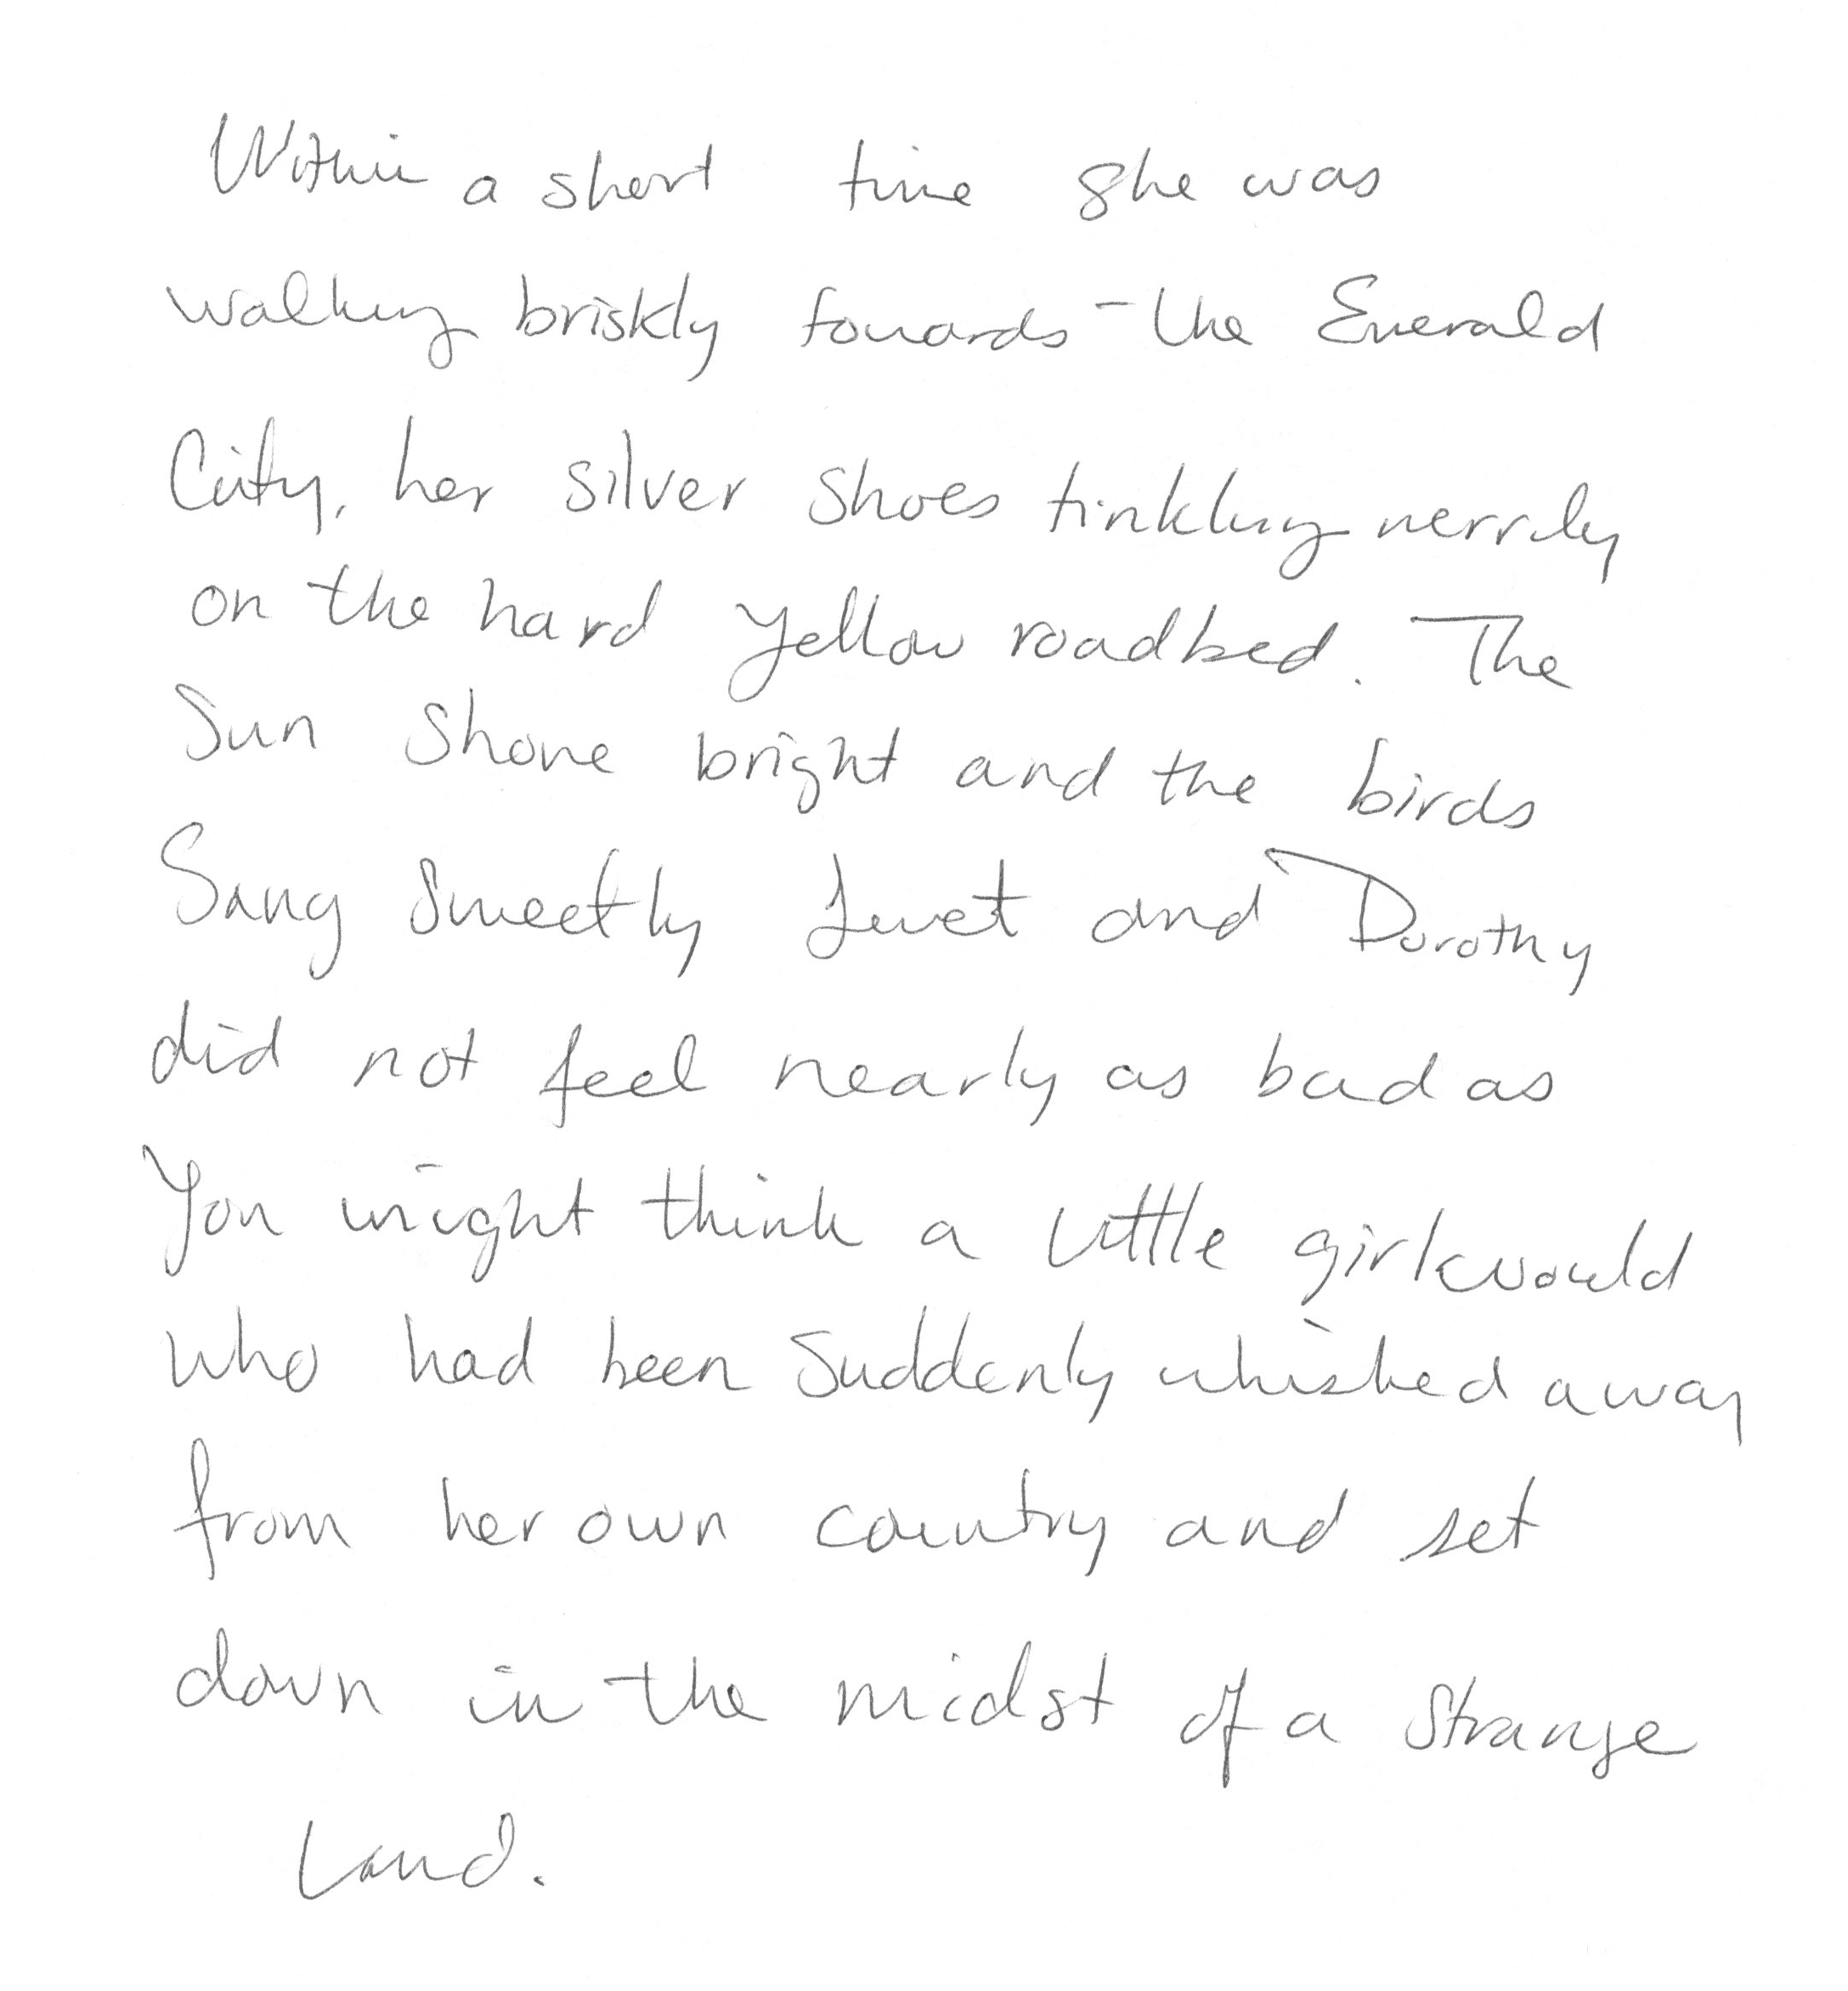 Within a short time she was
walking briskly towards the Emerald
City, her silver shoes tinkling merrily
on the hard yellow roadbed. The
Sun shone bright and the birds
Sang Sweetly and Dorothy
did not feel nearly as bad as
You might think a little girl would
who had been suddenly whisked away
from her own country and set
down in the midst of a strange
Land.